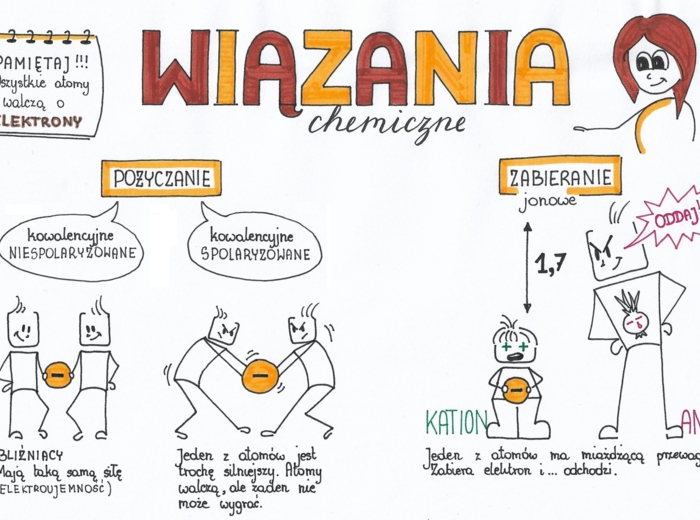 PAMIĘTAJ!!!
Wszystkie atomy
walczą o
ELEKTRONY
WIĄZANIA
chemiczne
POŻYCZANIE
kowalencyjne
NIESPOLARYZOWANE
kowalencyjne
SPOLARYZOWANE
BLIŹNIACY
Mają taką samą siłę
(ELEKTROUJEMNOŚĆ)
Jeden z atomów jest
trochę silniejszy. Atomy
walczą, ale żaden nie
może wygrać.
ZABIERANIE
jonowe
1,7
ODDAJ!
KATION
AN
Jeden z atomów ma miażdżącą przewag
Zabiera elektron i... odchodzi.